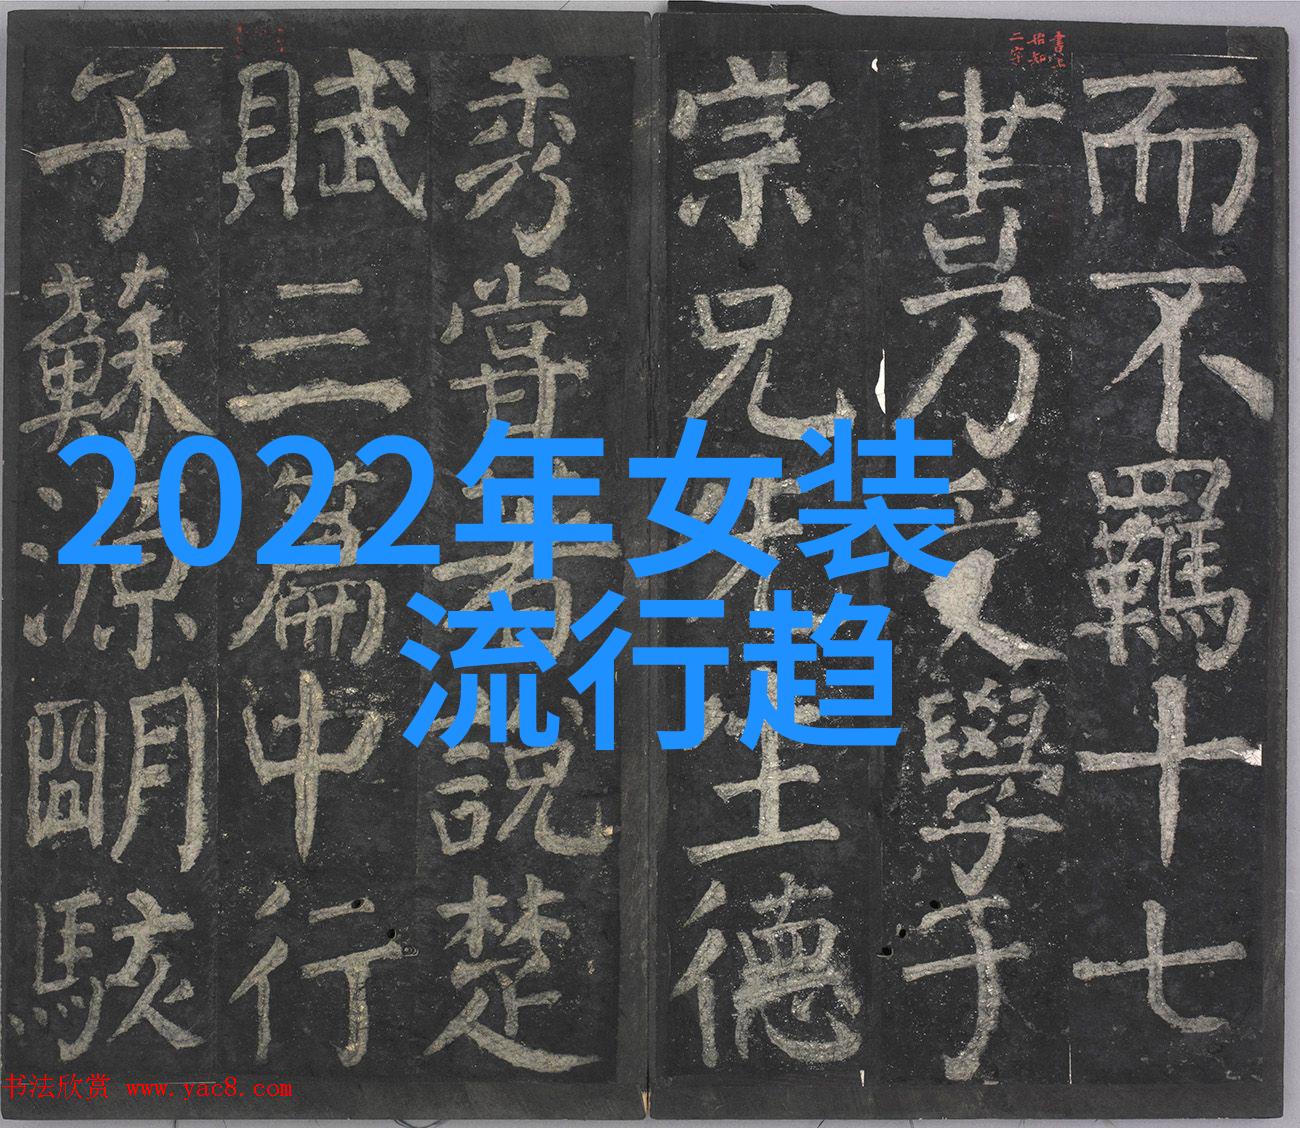 而不羈十七
書乃受學于
宗兄先生德
秀嘗者說楚
賦三篇中行
子蘇源明駭
2022年女装
流行趋
書上
二字
书法欣赏 www.yac8.com